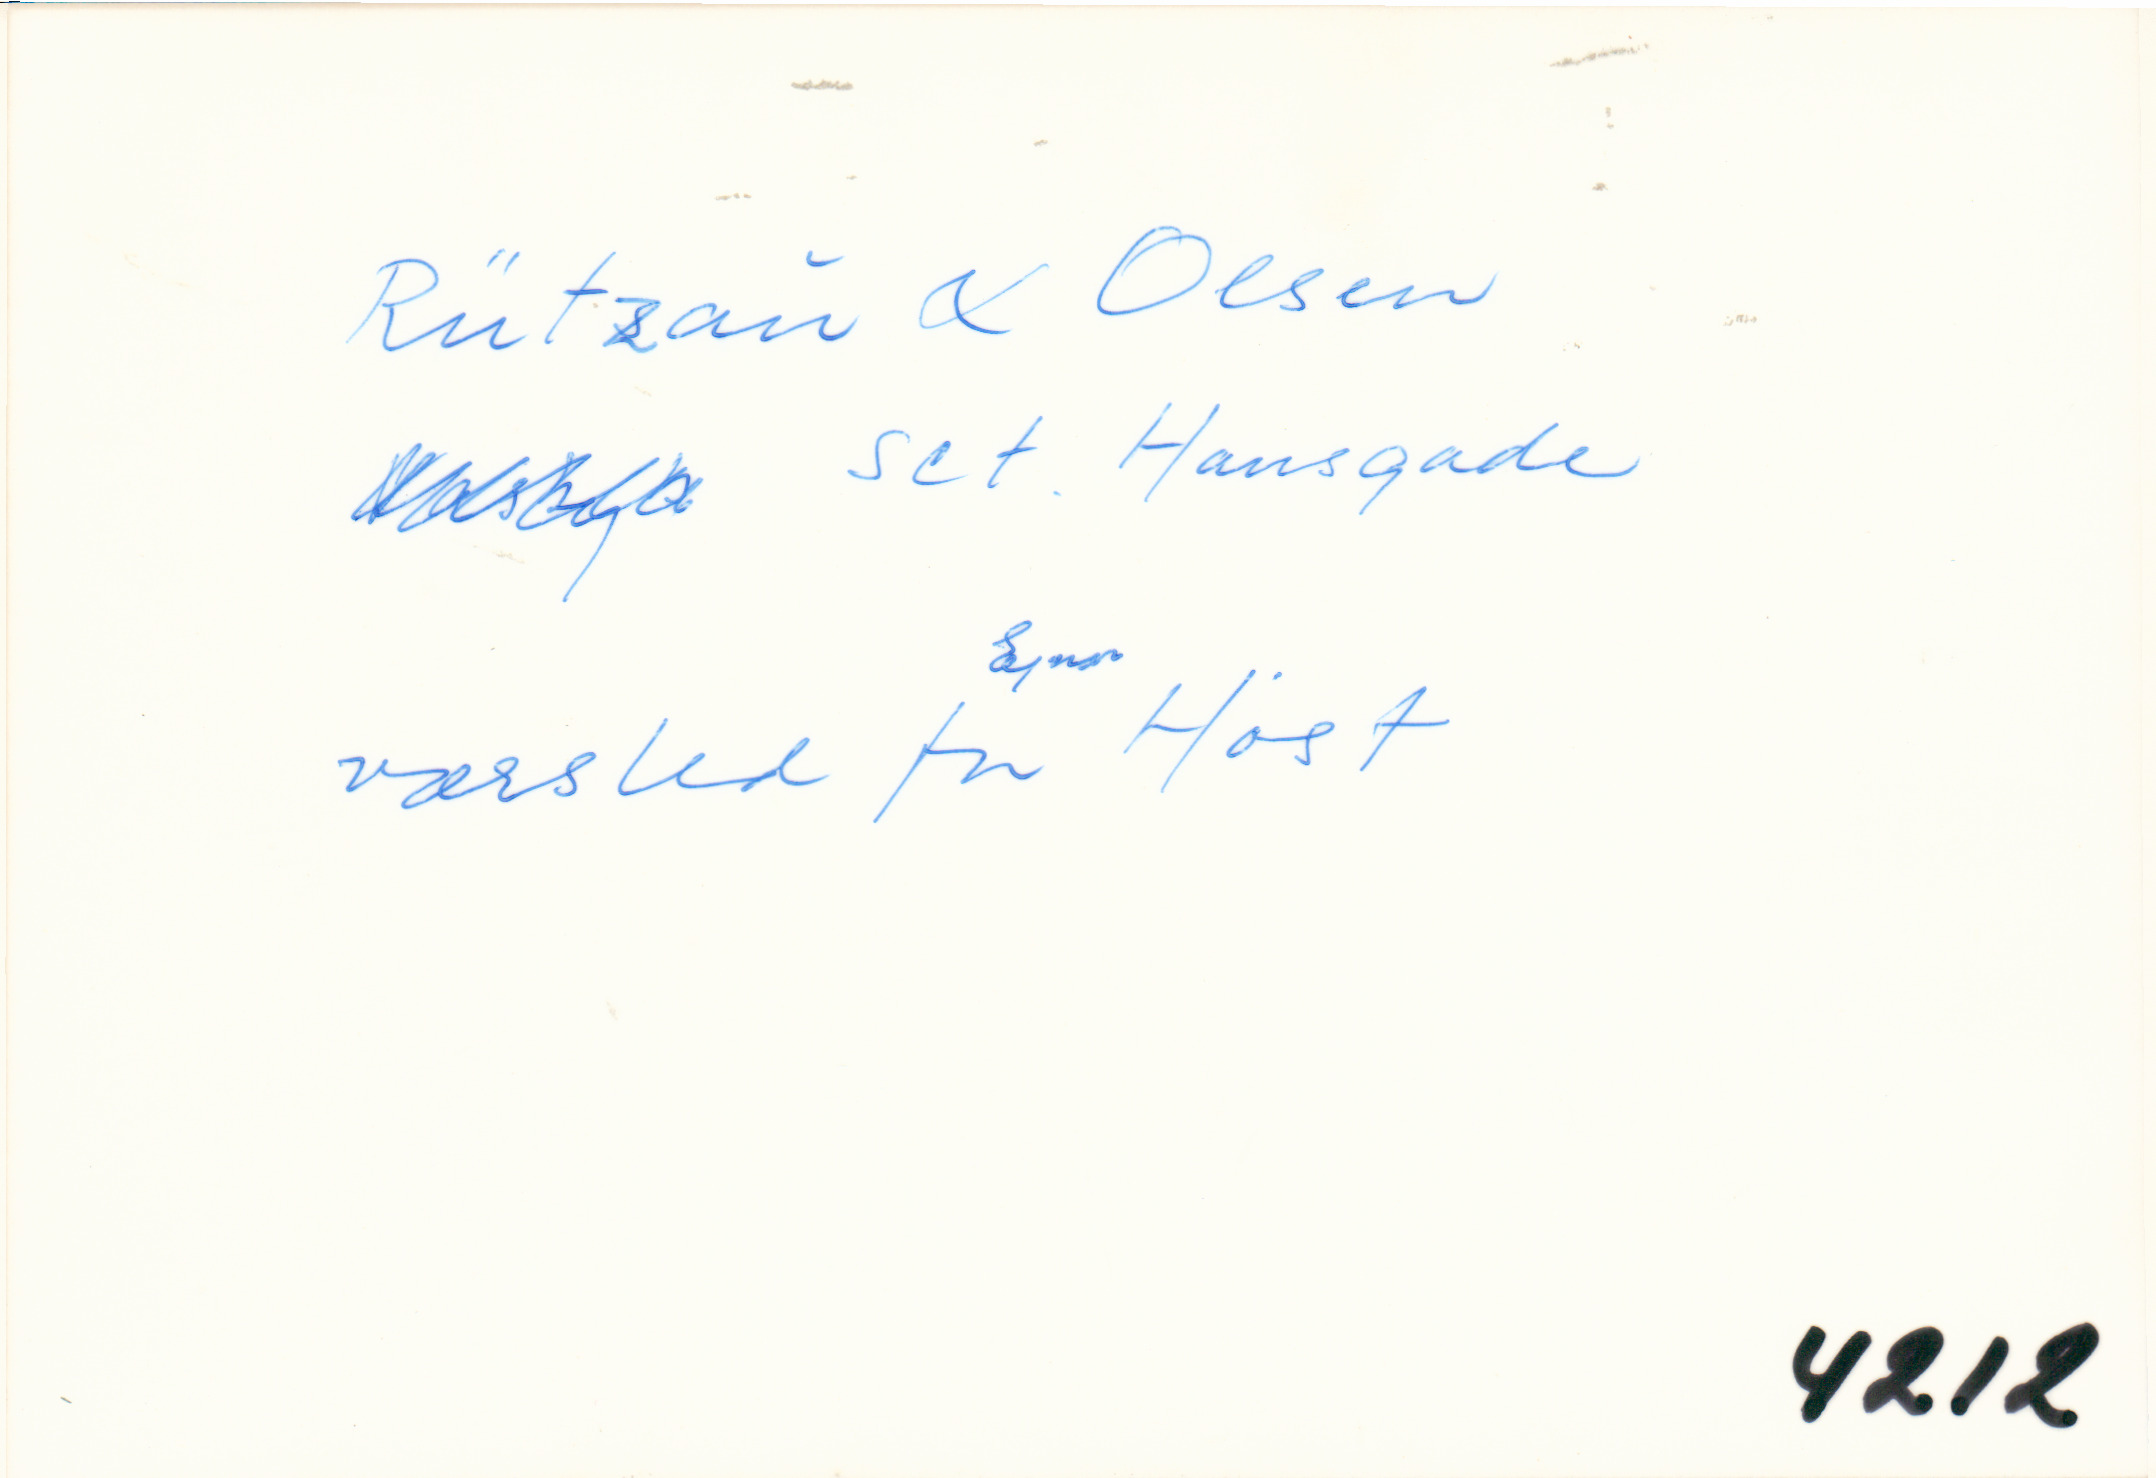 Rützaŭ & Olsen
Sct. Hansgade
værsted for Höst
4212